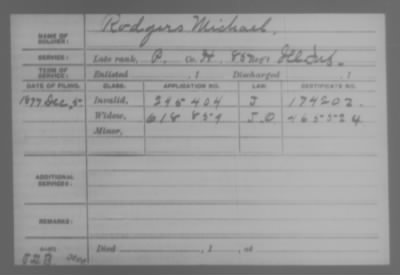 NAME OF SOLDIER: Rodgers Michael.
SERVICE: Late rank, P. Co. H. 88 Ills Inf.
TERM OF SERVICE: Enlisted , 1 Discharged , 1
DATE OF FILING. CLASS. APPLICATION NO. LAW. CERTIFICATE NO.
1877 Dec, 5 Invalid, 245404 J 174202.
Widow, 618 859 J.O. 465524
Minor,
ADDITIONAL SERVICES:
REMARKS:
Died , 1 , at